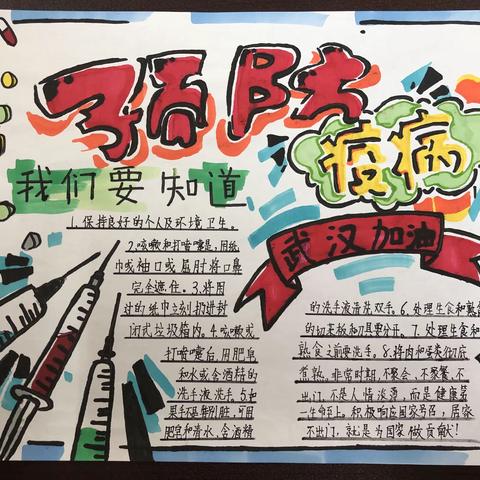 预防
疫病
我们要知道
武汉加油
1.保持良好的个人及环境卫生。
2.咳嗽和打喷嚏是,用纸
巾或袖口或屈肘将口鼻
完全遮住。3.将用
过的纸巾立刻扔进封
闭式垃圾箱内。4.咳嗽或
打喷嚏后,用肥皂
和水或含酒精的
洗手液洗手。5.如
果手不特别脏,可用
肥皂和清水、含酒精
的洗手液清洗双手。6.处理生食和熟食
的切菜板和刀具要分开。7.处理生食和
熟食之前要洗手。8.将肉和蛋类彻底
煮熟。非常时期,不聚会、不聚餐、不
出门,不是人情淡薄,而是健康第
一生命至上。积极响应国家号召,居家
不出门,就是为国家做贡献!